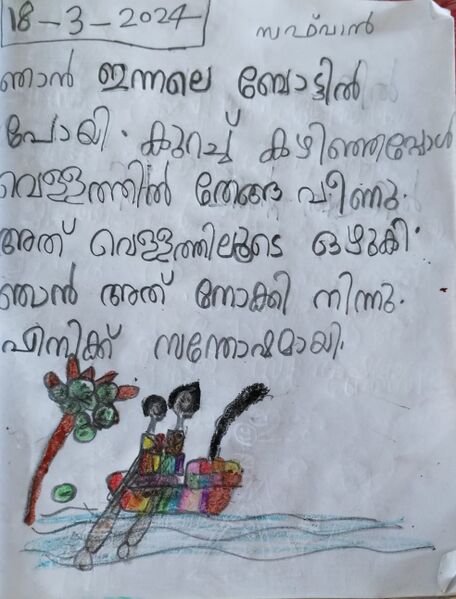 18-3-2024
സഫ്‌വാൻ
ഞാൻ ഇന്നലെ ബോട്ടിൽ
പോയി. കുറച്ച് കഴിഞ്ഞപ്പോൾ
വെള്ളത്തിൽ തേങ്ങ വീണു.
അത് വെള്ളത്തിലൂടെ ഒഴുകി.
ഞാൻ അത് നോക്കി നിന്നു.
എനിക്ക് സന്തോഷമായി.